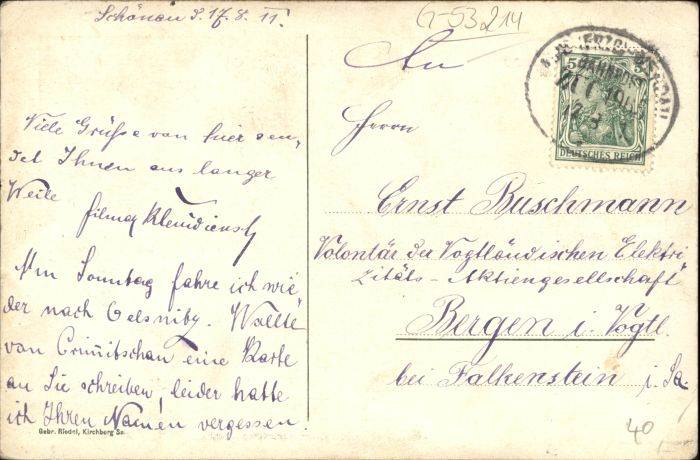 Schönau d. 17.8.11.
G-53214
Viele Grüße von hier sen-
det Ihnen aus langer
Weile
Am Sonntag fahre ich wie-
der nach Oelsnitz. Wollte
von Crimitschau eine Karte
an Sie schreiben, leider hatte
ich Ihren Namen vergessen.
Gebr. Riedel, Kirchberg Sa.
An
Herrn
Ernst Buschmann
Volontär der Vogtländischen Elektri-
zitäts-Aktiengesellschaft"
Bergen i. Vogtl.
bei Falkenstein i. Sa.
DEUTSCHES REICH
5
BAHNPOST
40,